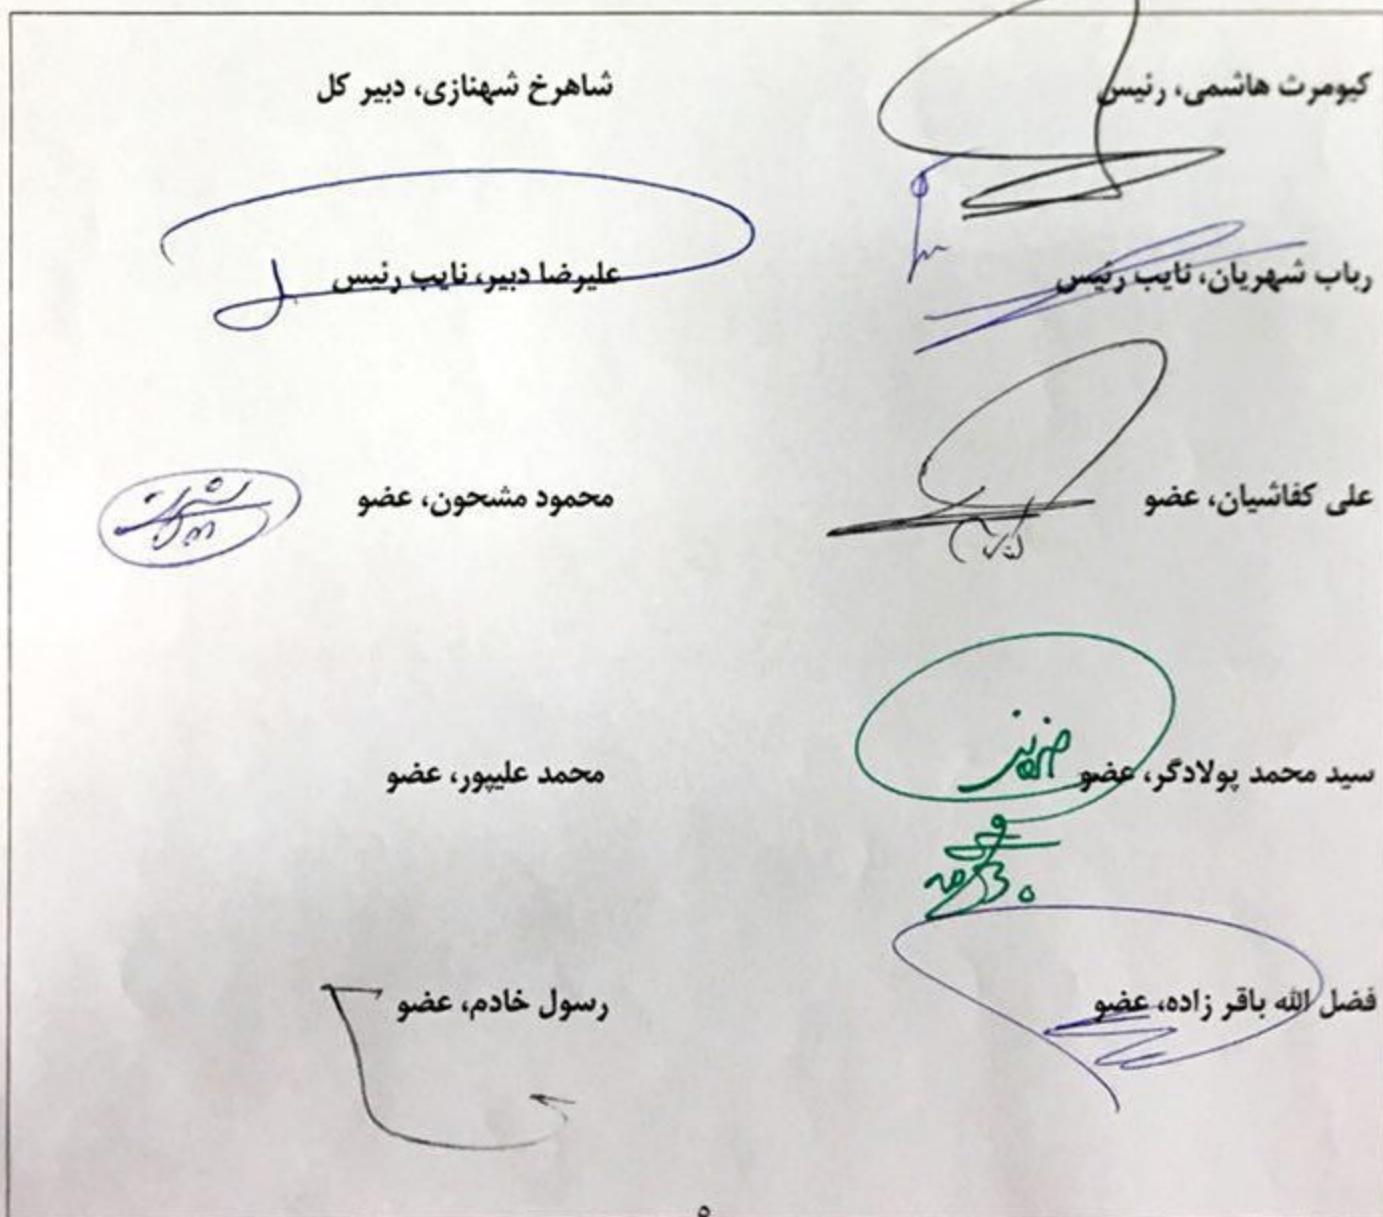 کیومرث هاشمی، رئیس
شاهرخ شهنازی، دبیر کل
رباب شهریان، نایب رئیس
علیرضا دبیر، نایب رئیس
علی کفاشیان، عضو
محمود مشحون، عضو
سید محمد پولادگر، عضو
محمد علیپور، عضو
فضل الله باقر زاده، عضو
رسول خادم، عضو